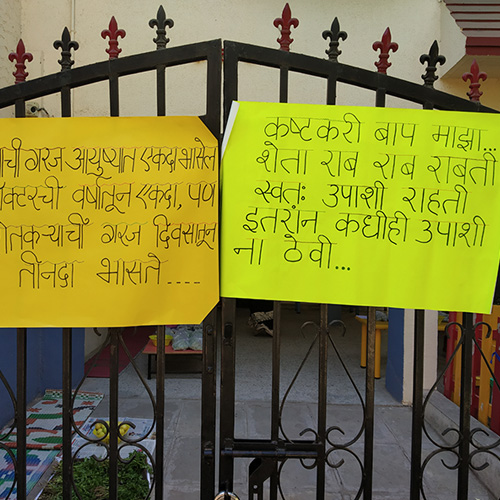 गरज आयुष्यात एकदा भासेल
वर्षातून एकदा, पण
गरज दिवसातून
तीनदा भासते....
कष्टकरी बाप माझा...
शेता राब राब राबतो
स्वतः उपाशी राहतो
इतरांन कधीही उपाशी
ना ठेवी...